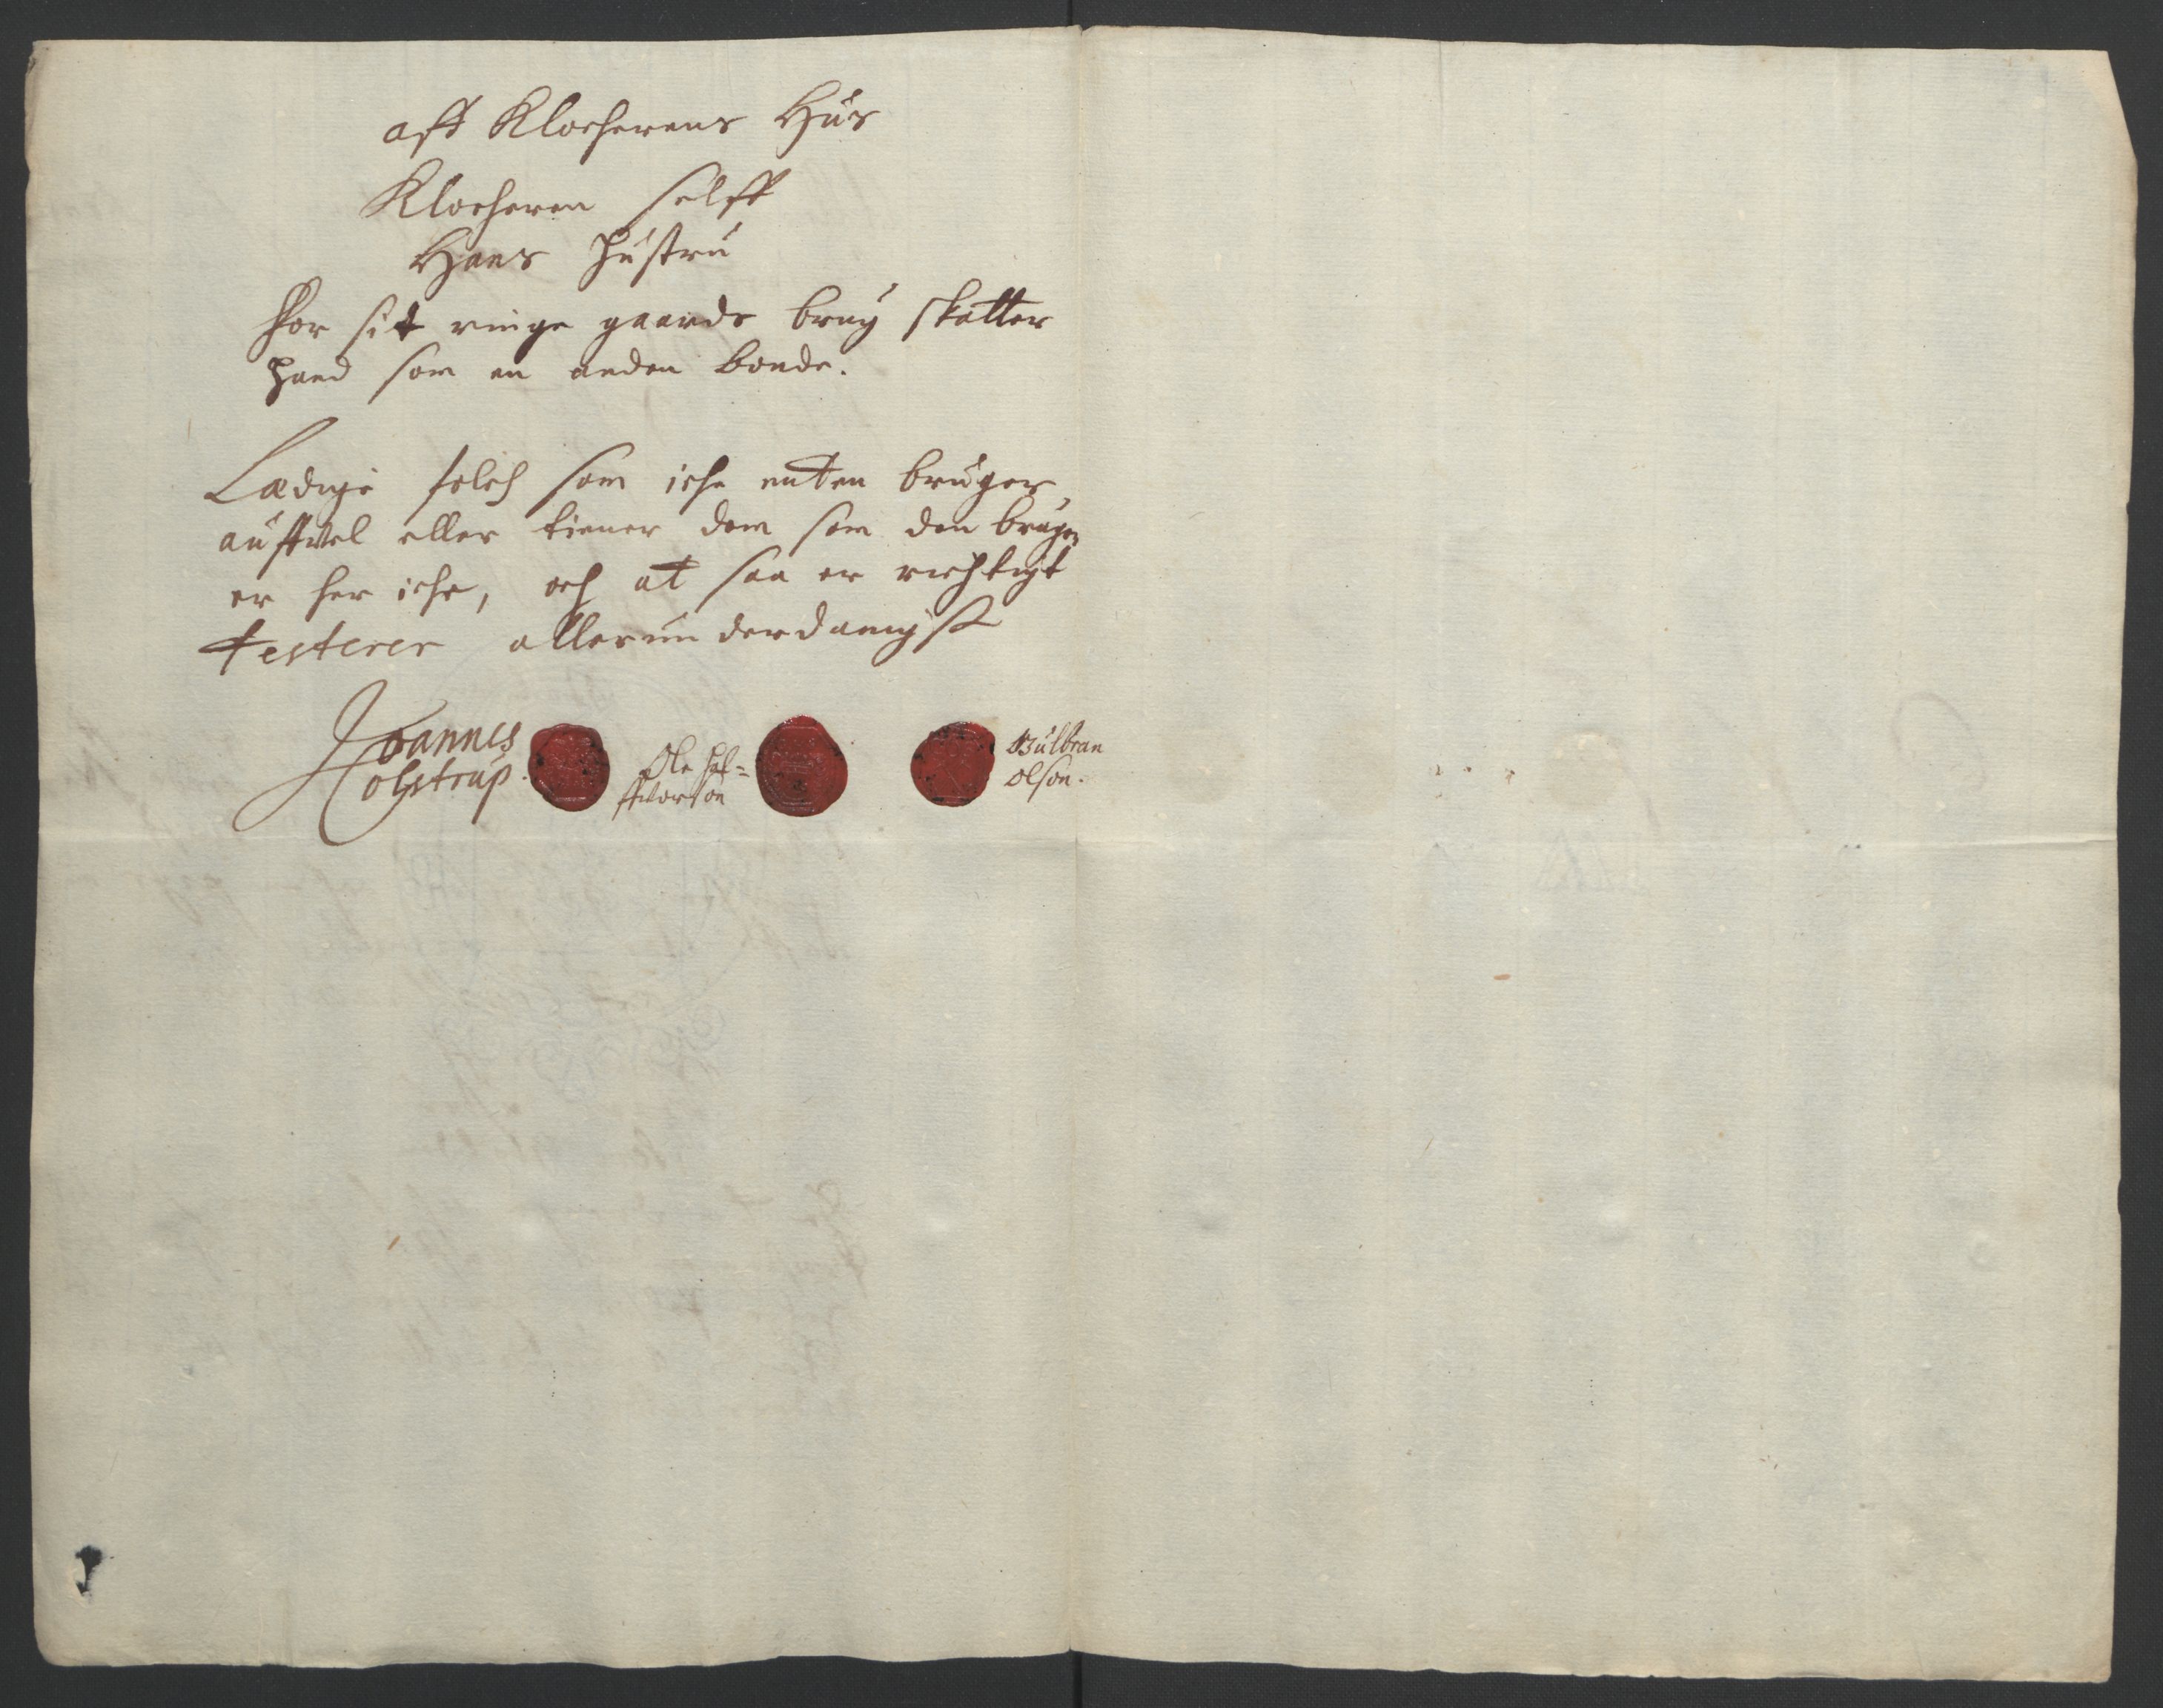 aff Klocherens Hus
Klocheren selff
Hans Hustru
For sit ringe gaards brug skatter
hand som en anden bonde.
Ledige folch som iche enten bruger
auffvel eller tiener dem som den bruger
er her iche, och at saa er richtigt
testerer allerunderdanigst
Joannes
Holstrup.
Ole Hal=
ffvorson
Gulbran
Olson.